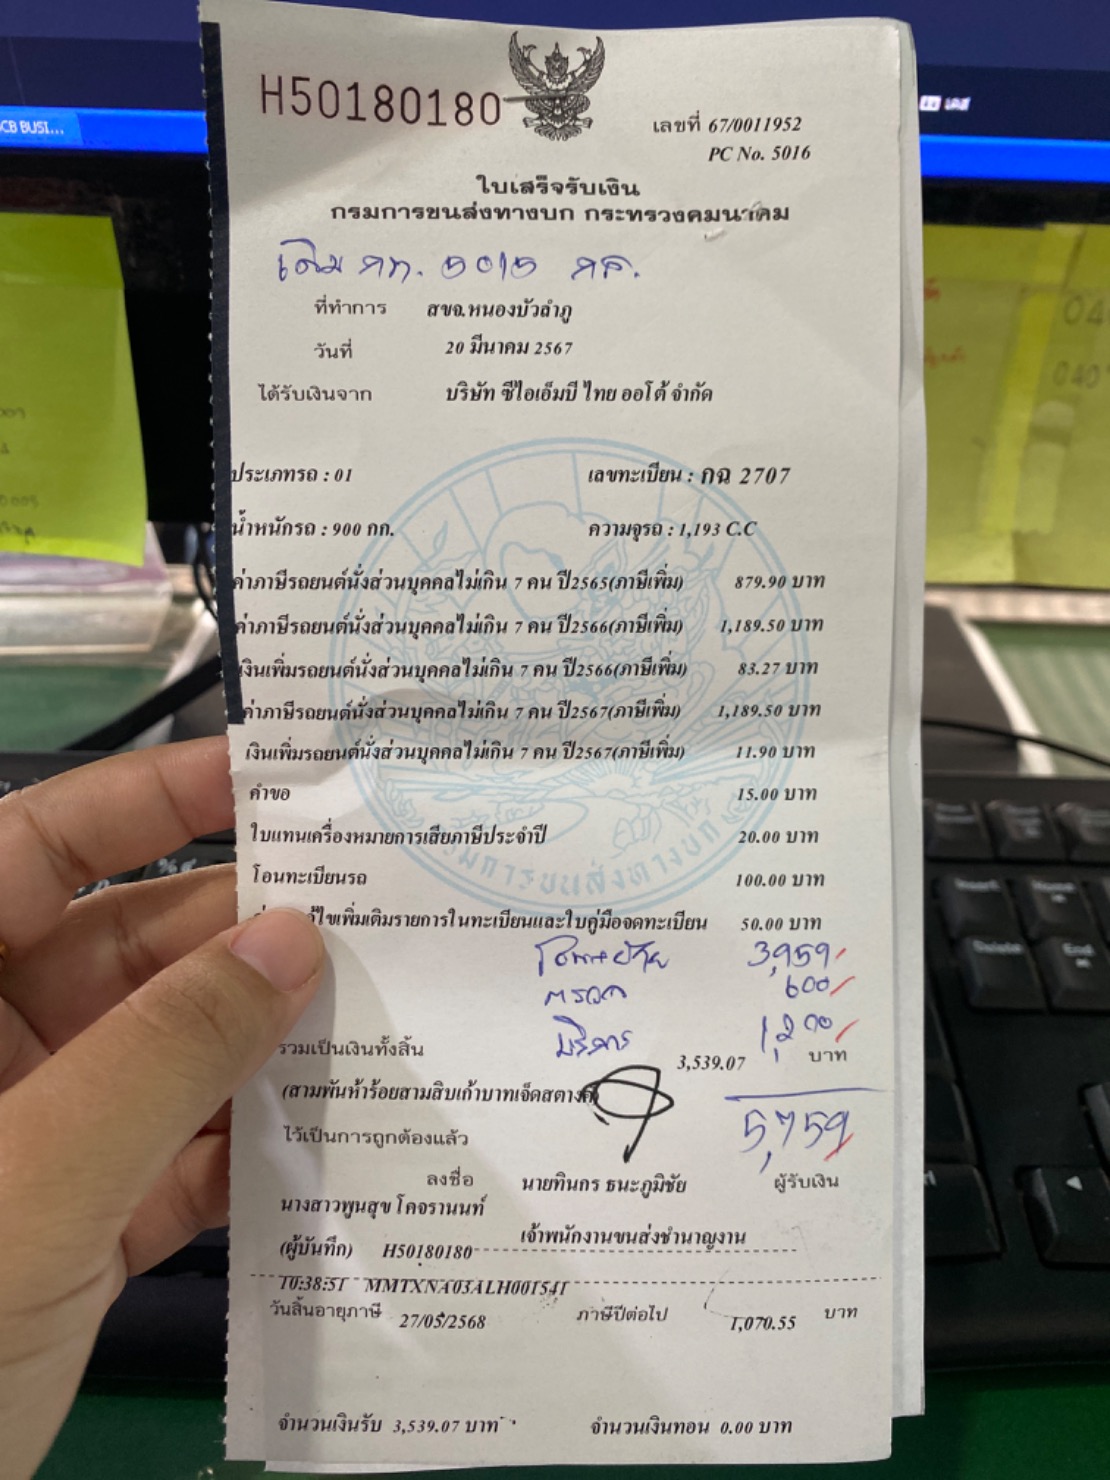 CB BUSI...
H50180180
เลขที่ 67/0011952
PC No. 5016
ใบเสร็จรับเงิน
กรมการขนส่งทางบก กระทรวงคมนาคม
เดิม กท. ๖๐๑๖ กส.
ที่ทำการ สขจ.หนองบัวลำภู
วันที่ 20 มีนาคม 2567
ได้รับเงินจาก บริษัท ซีไอเอ็มบี ไทย ออโต้ จำกัด
ประเภทรถ : 01 เลขทะเบียน : กฉ 2707
น้ำหนักรถ : 900 กก. ความจุรถ : 1,193 C.C
ค่าภาษีรถยนต์นั่งส่วนบุคคลไม่เกิน 7 คน ปี2565(ภาษีเพิ่ม) 879.90 บาท
ค่าภาษีรถยนต์นั่งส่วนบุคคลไม่เกิน 7 คน ปี2566(ภาษีเพิ่ม) 1,189.50 บาท
เงินเพิ่มรถยนต์นั่งส่วนบุคคลไม่เกิน 7 คน ปี2566(ภาษีเพิ่ม) 83.27 บาท
ค่าภาษีรถยนต์นั่งส่วนบุคคลไม่เกิน 7 คน ปี2567(ภาษีเพิ่ม) 1,189.50 บาท
เงินเพิ่มรถยนต์นั่งส่วนบุคคลไม่เกิน 7 คน ปี2567(ภาษีเพิ่ม) 11.90 บาท
คำขอ 15.00 บาท
ใบแทนเครื่องหมายการเสียภาษีประจำปี 20.00 บาท
โอนทะเบียนรถ 100.00 บาท
ไขเพิ่มเติมรายการในทะเบียนและใบคู่มือจดทะเบียน 50.00 บาท
กรมการขนส่งทางบก
3,959
ตรวจ 600
บริการ 1,200
รวมเป็นเงินทั้งสิ้น 3,539.07 บาท
(สามพันห้าร้อยสามสิบเก้าบาทเจ็ดสตางค์)
5,759
ไว้เป็นการถูกต้องแล้ว
ลงชื่อ นายทินกร ธนะภูมิชัย ผู้รับเงิน
นางสาวพูนสุข โคจรานนท์
เจ้าพนักงานขนส่งชำนาญงาน
(ผู้บันทึก) H50180180
10:38:51 MMTXNA03ALH001541
วันสิ้นอายุภาษี 27/05/2568 ภาษีปีต่อไป 1,070.55 บาท
จำนวนเงินรับ 3,539.07 บาท จำนวนเงินทอน 0.00 บาท
Delete
End